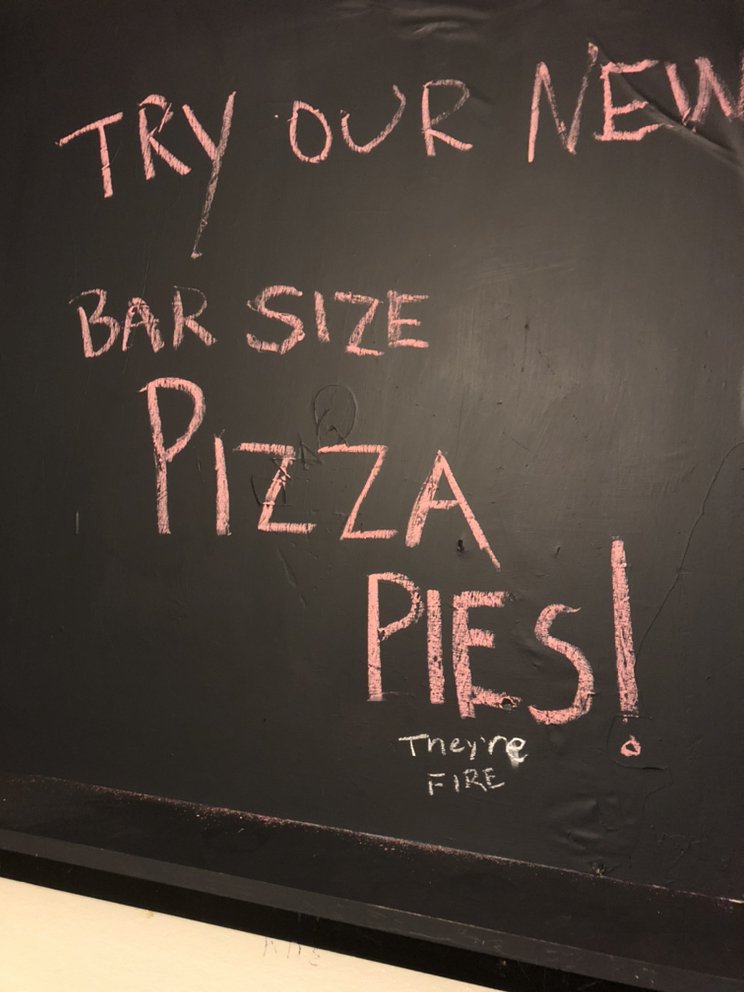 TRY OUR NEW
BAR SIZE
PIZZA
PIES!
They're
FIRE